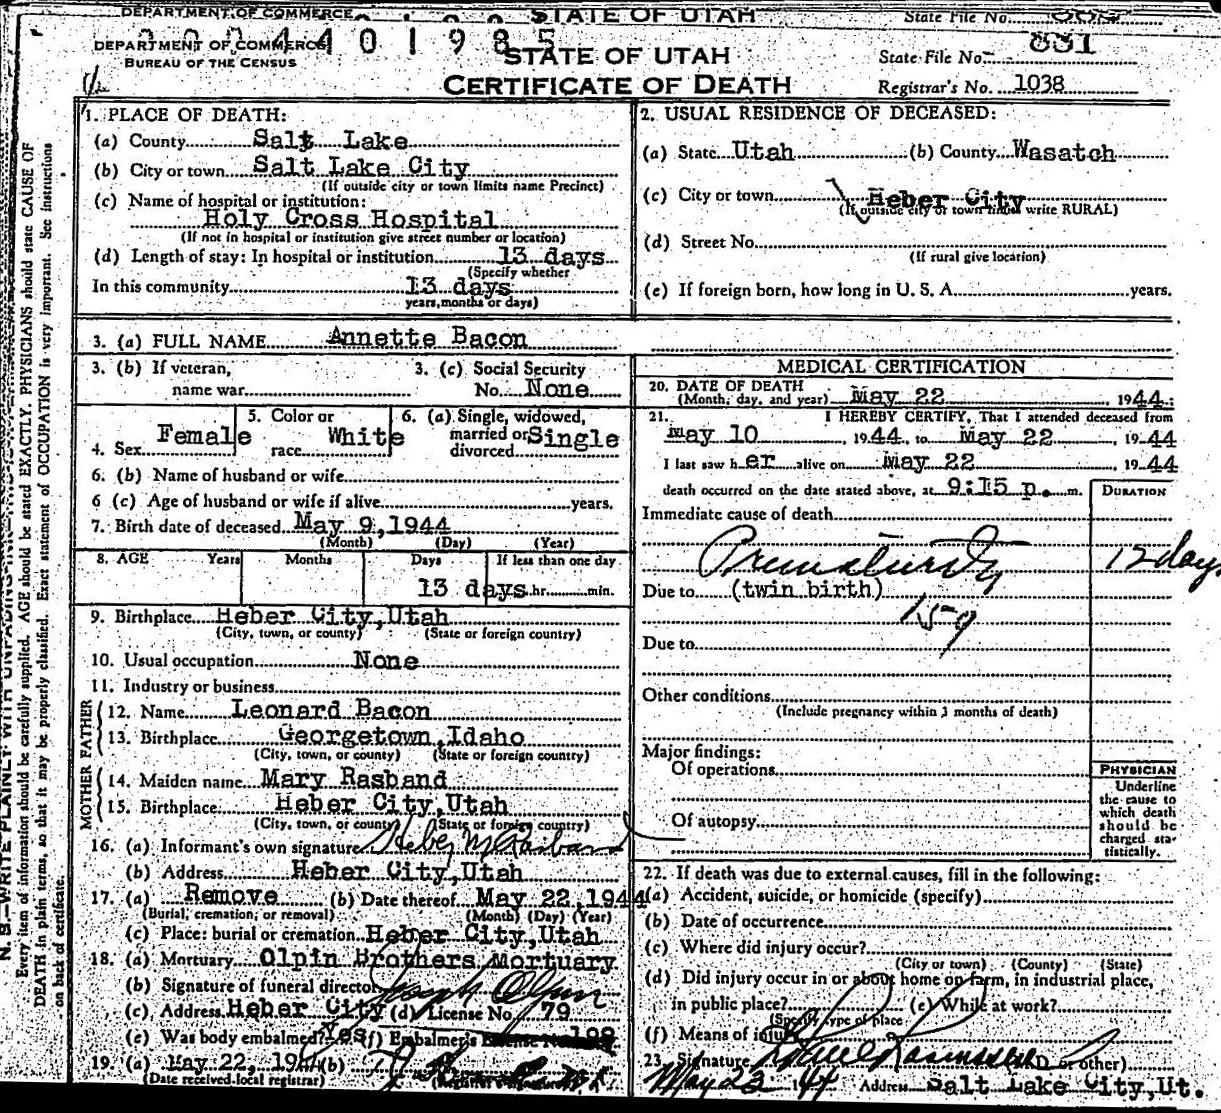 DEPARTMENT OF COMMERCE STATE OF UTAH State File No.
DEPARTMENT OF COMMERCE STATE OF UTAH State File No. 831
BUREAU OF THE CENSUS
CERTIFICATE OF DEATH Registrar's No. 1038
1. PLACE OF DEATH:
(a) County Salt Lake
(b) City or town Salt Lake City
(If outside city or town limits name Precinct)
(c) Name of hospital or institution:
Holy Cross Hospital
(If not in hospital or institution give street number or location)
(d) Length of stay: In hospital or institution 13 days
(Specify whether
In this community 13 days
years, months or days)
2. USUAL RESIDENCE OF DECEASED:
(a) State Utah (b) County Wasatch
(c) City or town Heber City
(If outside city or town limits write RURAL)
(d) Street No.
(If rural give location)
(e) If foreign born, how long in U. S. A. years.
3. (a) FULL NAME Annette Bacon
3. (b) If veteran, name war
3. (c) Social Security No. None
4. Sex Female
5. Color or race White
6. (a) Single, widowed, married or divorced Single
6. (b) Name of husband or wife
6 (c) Age of husband or wife if alive years.
7. Birth date of deceased May 9, 1944
(Month) (Day) (Year)
8. AGE Years Months Days If less than one day
13 days hr. min.
9. Birthplace Heber City, Utah
(City, town, or county) (State or foreign country)
10. Usual occupation None
11. Industry or business
FATHER
12. Name Leonard Bacon
13. Birthplace Georgetown, Idaho
(City, town, or county) (State or foreign country)
MOTHER
14. Maiden name Mary Rasband
15. Birthplace Heber City, Utah
(City, town, or county) (State or foreign country)
16. (a) Informant's own signature Heber M Rasband
(b) Address Heber City, Utah
17. (a) Remove (b) Date thereof May 22, 1944
(Burial, cremation, or removal) (Month) (Day) (Year)
(c) Place: burial or cremation Heber City, Utah
18. (a) Mortuary Olpin Brothers Mortuary
(b) Signature of funeral director Joseph Olpin
(c) Address Heber City (d) License No. 79
(e) Was body embalmed? Yes (f) Embalmer's License No. 198
19. (a) May 22, 1944 (b)
(Date received local registrar)
MEDICAL CERTIFICATION
20. DATE OF DEATH
(Month, day, and year) May 22, 1944
21. I HEREBY CERTIFY, That I attended deceased from
May 10, 1944, to May 22, 1944
I last saw her alive on May 22, 1944
death occurred on the date stated above, at 9:15 p. m. DURATION
Immediate cause of death
Prematurity 12 days
Due to (twin birth)
159
Due to
Other conditions
(Include pregnancy within 3 months of death)
Major findings:
Of operations
Of autopsy
PHYSICIAN
Underline
the cause to
which death
should be
charged sta-
tistically.
22. If death was due to external causes, fill in the following:
(a) Accident, suicide, or homicide (specify)
(b) Date of occurrence
(c) Where did injury occur?
(City or town) (County) (State)
(d) Did injury occur in or about home on farm, in industrial place,
in public place? (e) While at work?
(Specify type of place
(f) Means of injury
23. Signature Rasmussen (M.D. or other)
May 23 1944 Address Salt Lake City, Ut.
N. B.—WRITE PLAINLY WITH UNFADING
Every item of information should be carefully supplied. AGE should be stated EXACTLY. PHYSICIANS should state CAUSE OF
DEATH in plain terms, so that it may be properly classified. Exact statement of OCCUPATION is very important. See instructions
on back of certificate.